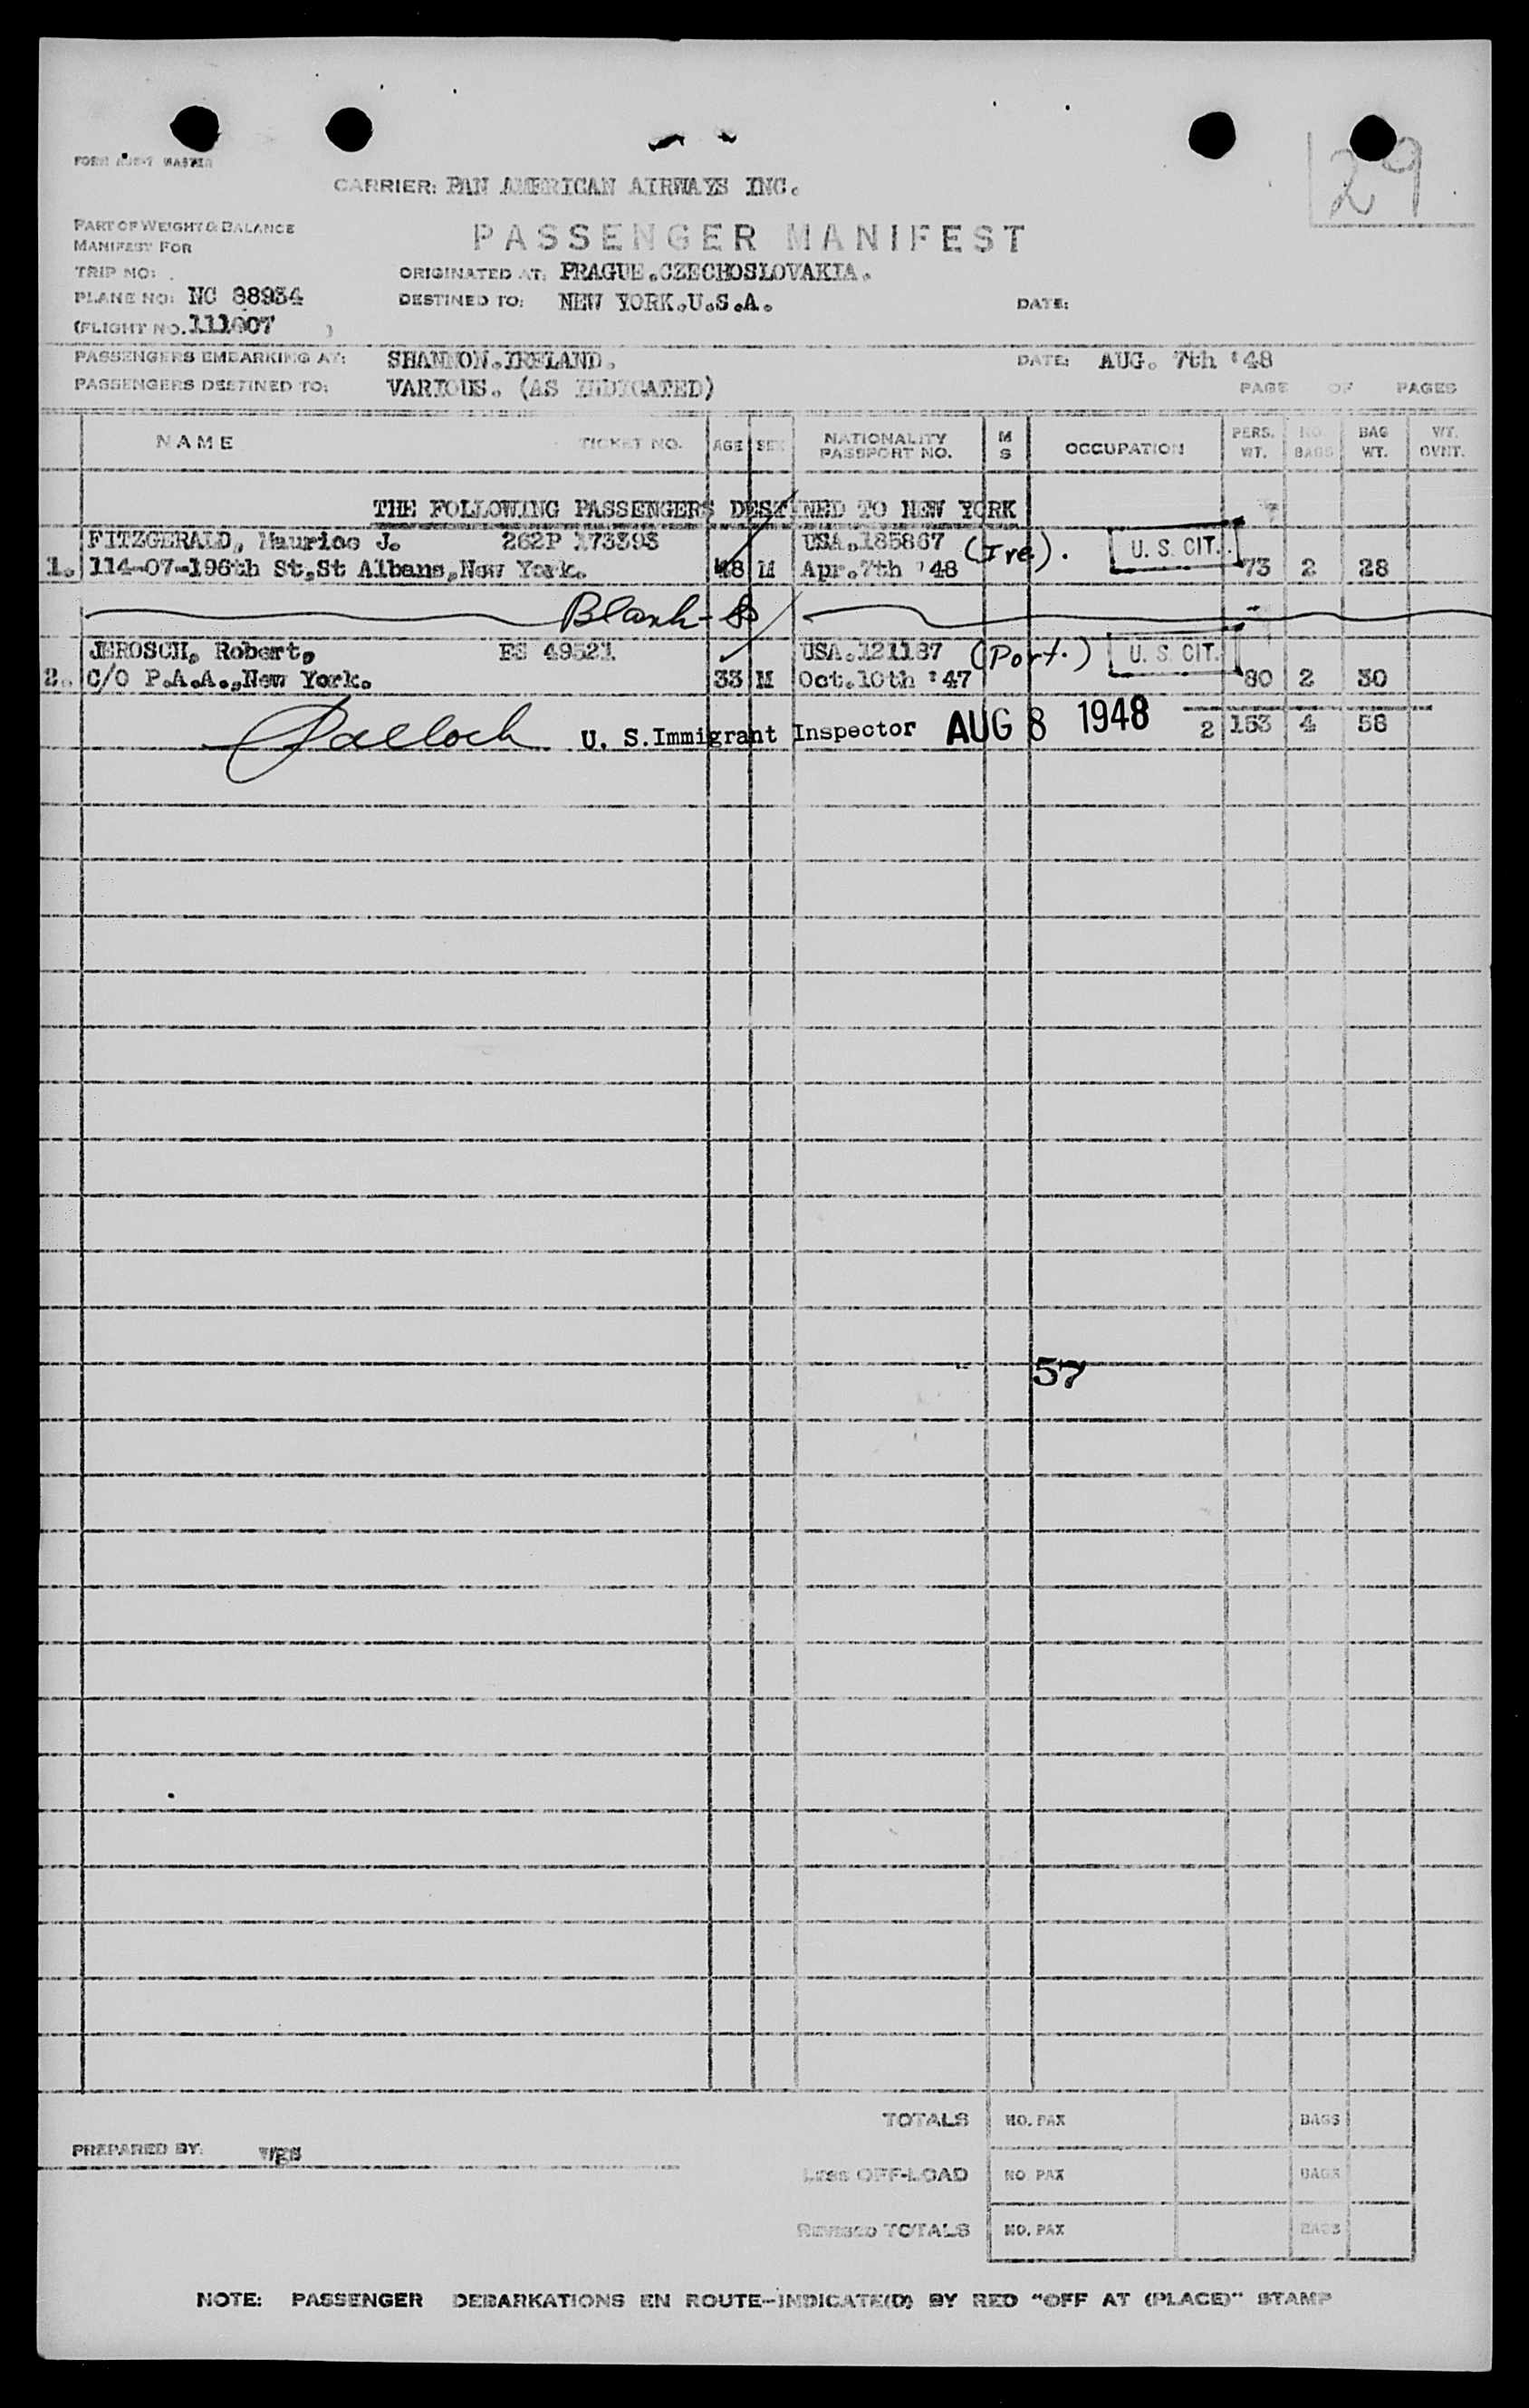 29
FORM
CARRIER: PAN AMERICAN AIRWAYS INC.
PART OF WEIGHT & BALANCE
MANIFEST FOR
PASSENGER MANIFEST
TRIP NO:
ORIGINATED AT: PRAGUE.CZECHOSLOVAKIA.
PLANE NO: NC 88934
DESTINED TO: NEW YORK.U.S.A.
DATE:
(FLIGHT NO. )
PASSENGERS EMBARKING AT: SHANNON.IRELAND.
DATE: AUG. 7th '48
PASSENGERS DESTINED TO: VARIOUS. (AS INDICATED)
PAGE OF PAGES
NAME TICKET NO. AGE SEX NATIONALITY PASSPORT NO. M S OCCUPATION PERS. WT. NO. BAGS BAG WT. WT. OVHT.
THE FOLLOWING PASSENGERS DESTINED TO NEW YORK
FITZGERALD, Maurice J. 262P 173393 USA.185867 (Ire). U. S. CIT.
1. 114-07-196th St,St Albans,New York. 48 M Apr.7th '48 73 2 28
Blank
JEROSCH, Robert, ES 49521 USA.121187 (Port.) U. S. CIT.
2. C/O P.A.A.,New York. 33 M Oct.10th '47 80 2 30
U. S. Immigrant Inspector AUG 8 1948 2 153 4 58
57
TOTALS NO. PAX BAGS
PREPARED BY:
Less OFF-LOAD NO PAX BAGS
Revised TOTALS NO. PAX BAGS
NOTE: PASSENGER DEBARKATIONS EN ROUTE-INDICATE(D) BY RED "OFF AT (PLACE)" STAMP